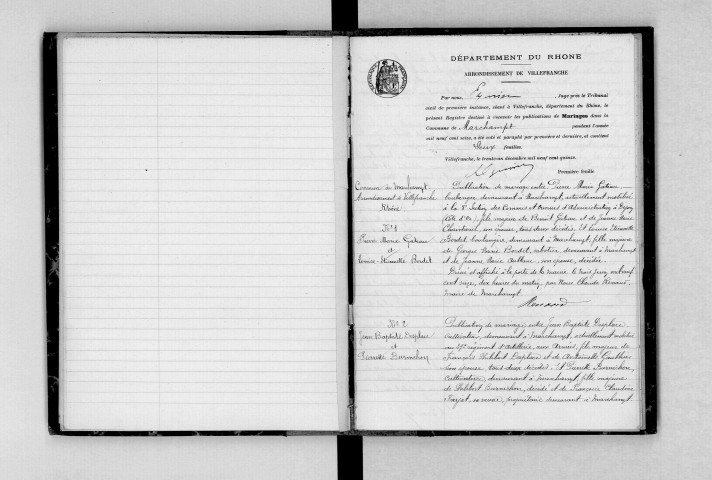 DÉPARTEMENT DU RHONE
ARRONDISSEMENT DE VILLEFRANCHE
Par nous, Juge près le Tribunal
civil de première instance, séant à Villefranche, département du Rhône, le
présent Registre destiné à recevoir les publications de Mariages dans la
Commune de Marchampt pendant l'année
mil neuf cent seize, a été coté et paraphé par première et dernière, et contient
Deux feuillets.
Villefranche, le trente-un décembre mil neuf cent quinze.
Première feuille
Commune de Marchampt
Arrondissement de Villefranche
Rhône
N° 1
Pierre Marie Gatiau
et
Louise Etiennette Bordet
Publication de mariage entre Pierre Marie Gatiau
boulanger, demeurant à Marchampt, actuellement mobilisé
à la Section des Commis et Ouvriers d'Administration à Dijon
(Côte d'Or), fils majeur de Benoit Gatiau et de Jeanne Marie
son épouse, tous deux décédés. Et Louise Etiennette
Bordet, boulangère, demeurant à Marchampt, fille majeure
de Marie Bordet, sabotier, demeurant à Marchampt
et de Jeanne Marie son épouse, décédée.
Dressé et affiché à la porte de la mairie le trois mil neuf
cent seize, dix heures du matin, par Nous Claude Renard
maire de Marchampt.
Renard
N° 2
Jean Baptiste Desplace
et
Pierrette Burnichon
Publication de mariage entre Jean Baptiste Desplace
cultivateur, demeurant à Marchampt, actuellement mobilisé
au régiment d'Artillerie, aux Armées, fils majeur de
François Philibert Desplace et de Antoinette
son épouse tous deux décédés. Et Pierrette Burnichon,
cultivatrice, demeurant à Marchampt, fille majeure
de Philibert Burnichon, décédé et de Françoise Claudine
sa veuve, propriétaire demeurant à Marchampt.